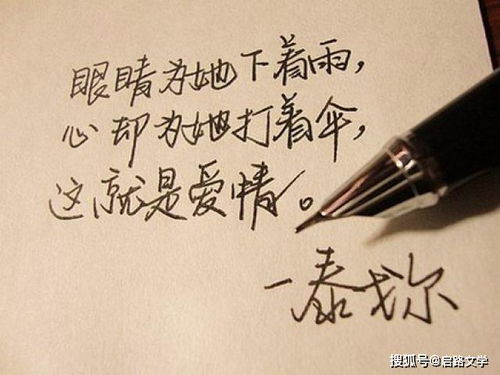 眼睛为她下着雨，
心却为她打着伞，
这就是爱情。
—泰戈尔
搜狐号@启路文学